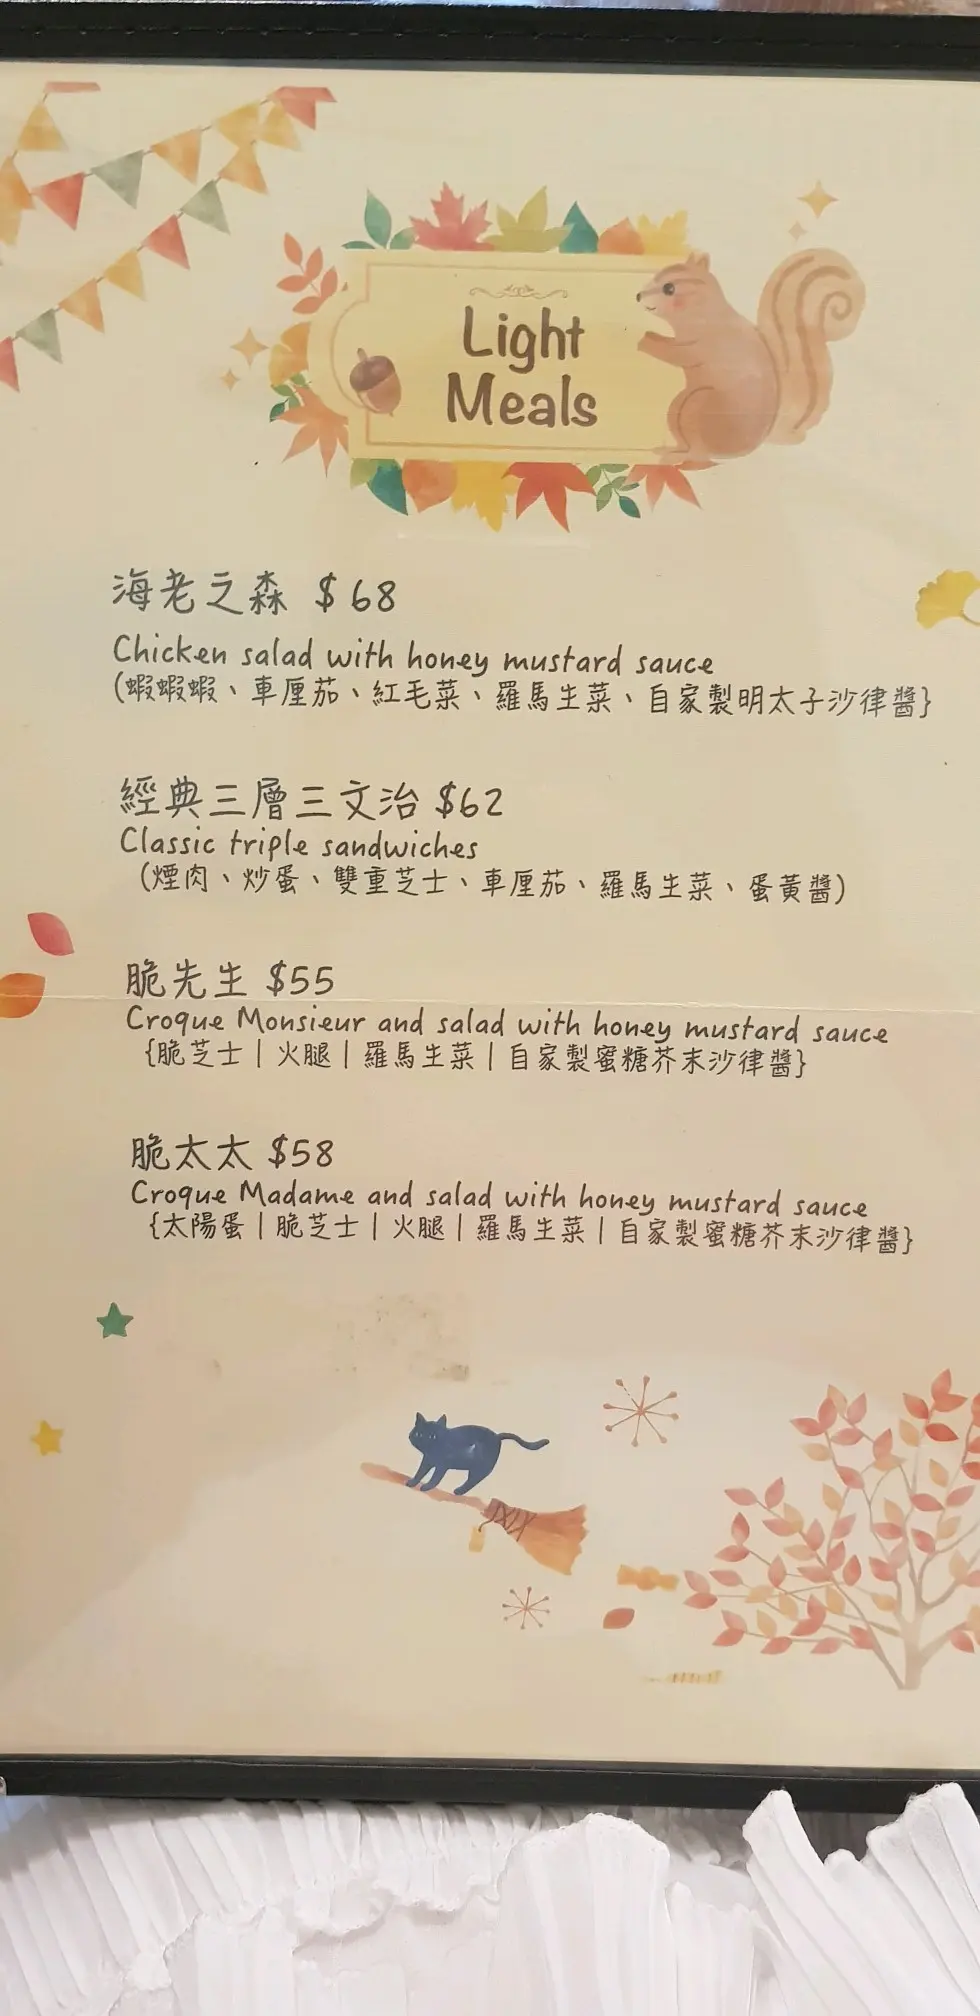 Light
Meals
海老之森 $68
Chicken salad with honey mustard sauce
(蝦蝦蝦、車厘茄、紅毛菜、羅馬生菜、自家製明太子沙律醬}
經典三層三文治 $62
Classic triple sandwiches
(煙肉、炒蛋、雙重芝士、車厘茄、羅馬生菜、蛋黃醬)
脆先生 $55
Croque Monsieur and salad with honey mustard sauce
{脆芝士 | 火腿 | 羅馬生菜 | 自家製蜜糖芥末沙律醬}
脆太太 $58
Croque Madame and salad with honey mustard sauce
{太陽蛋 | 脆芝士 | 火腿 | 羅馬生菜 | 自家製蜜糖芥末沙律醬}